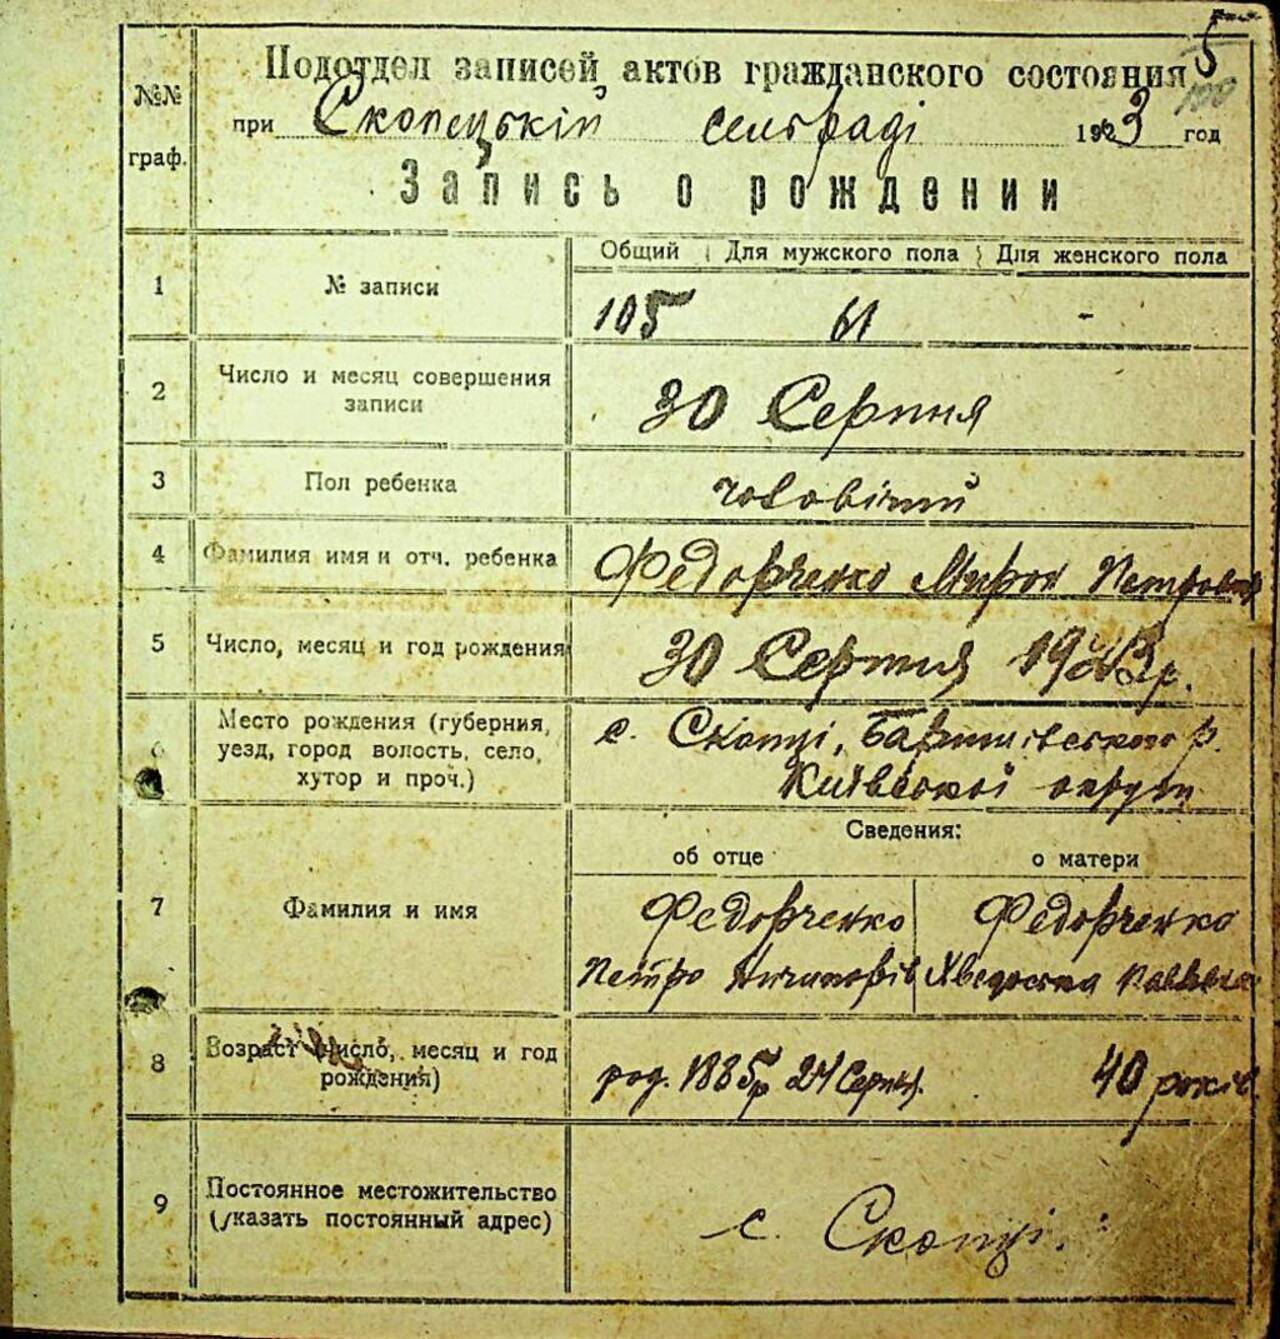 5
100
№№ граф.
Подотдел записей актов гражданского состояния
при Скопецькій сельраді 1923 год
Запись о рождении
Общий Для мужского пола Для женского пола
1 № записи 105 61 -
2 Число и месяц совершения записи 30 Серпня
3 Пол ребенка чоловічий
4 Фамилия имя и отч. ребенка Федорченко Мирон Петрович
5 Число, месяц и год рождения 30 Серпня 1923 р.
Место рождения (губерния, уезд, город волость, село, хутор и проч.) с. Скопці, Баришівського р.
Київської округи
Сведения:
об отце о матери
7 Фамилия и имя Федорченко Федорченко
Петро Ничипорів Хведоська
8 Возраст (число, месяц и год рождения) род. 1885р 24 Серпня. 40 років
9 Постоянное местожительство (указать постоянный адрес) с. Скопці.